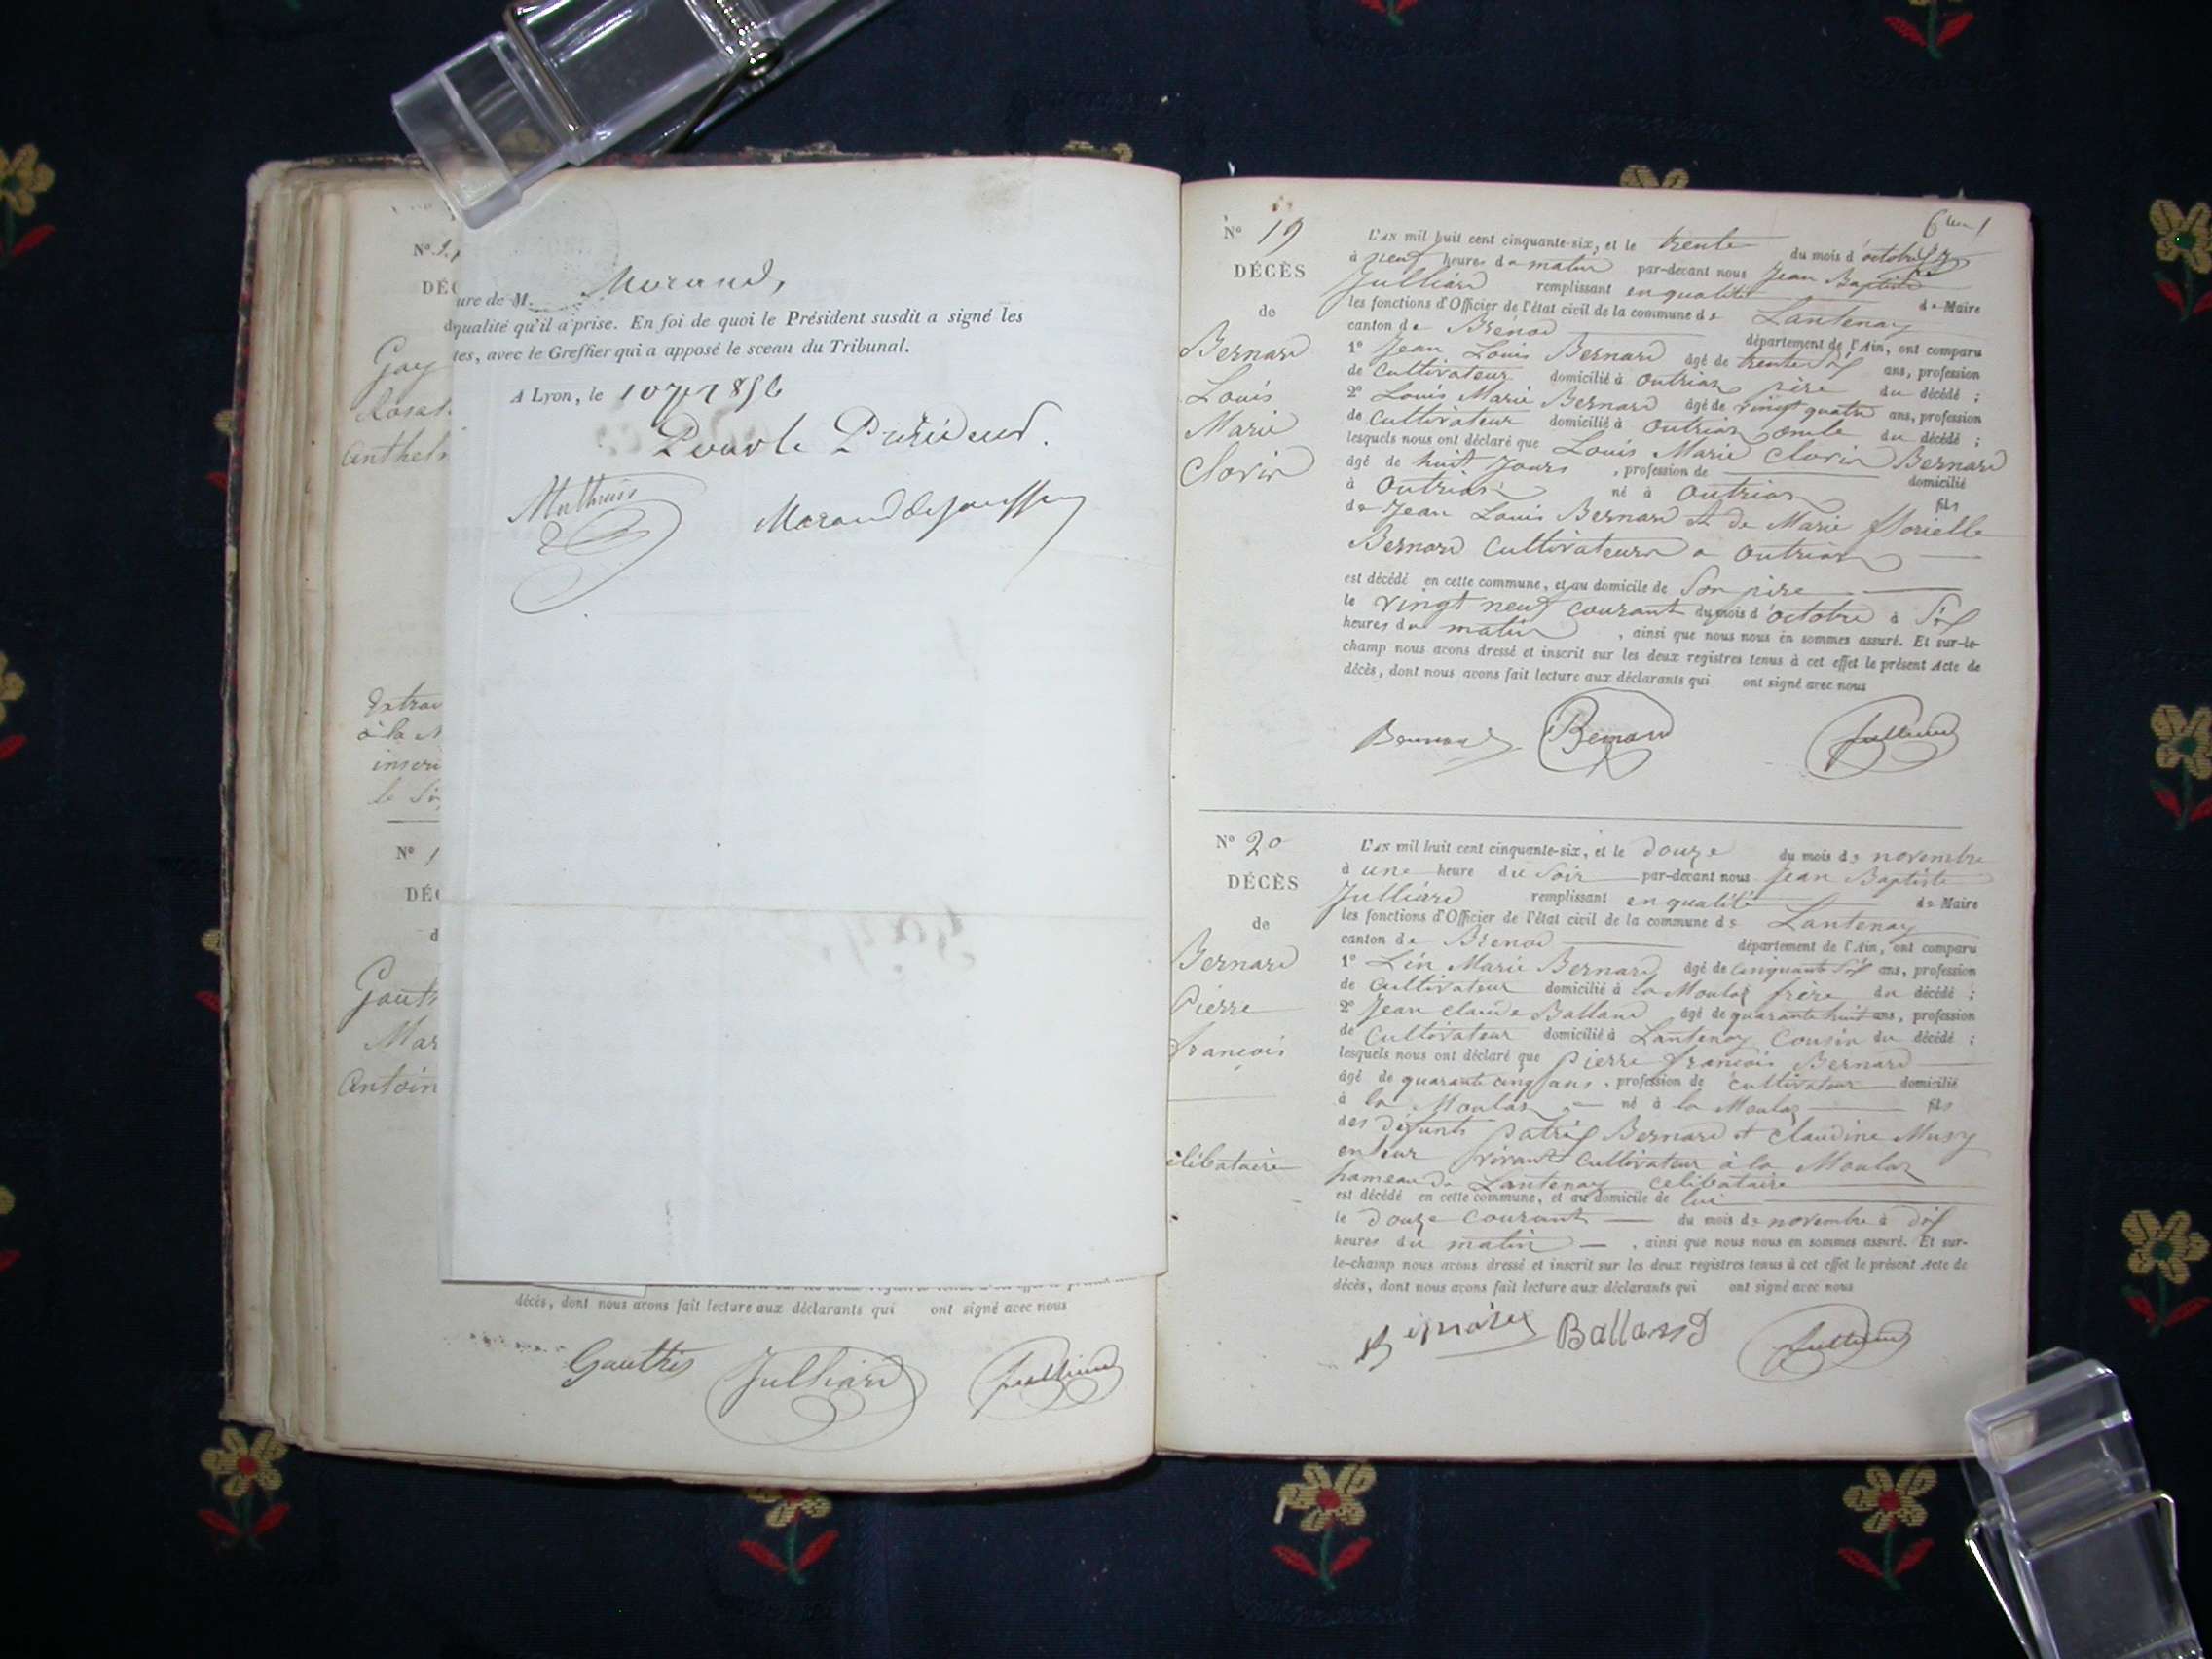 Nº
DÉC
Gay
Rosal
anthel
Extrai
à la M
inscri
le
Nº 1
DÉC
d
Gauth
Mar
Antoin
ure de M. Morand,
qualité qu'il a prise. En foi de quoi le Président susdit a signé les
tes, avec le Greffier qui a apposé le sceau du Tribunal.
A Lyon, le 10 7bre 1856
Pour le Président.
Mathieu
Morand de Jouffrey
décès, dont nous avons fait lecture aux déclarants qui ont signé avec nous
Gauthier Julliard Julliard
6
Nº 19
DÉCÈS
de
Bernard
Louis
Marie
Clovis
L'an mil huit cent cinquante-six, et le trente du mois d'octobre
à neuf heures du matin par-devant nous Jean Baptiste
Julliard remplissant en qualité de Maire
les fonctions d'Officier de l'état civil de la commune de Lantenay
canton de Brenod département de l'Ain, ont comparu
1º Jean Louis Bernard âgé de trente six ans, profession
de Cultivateur domicilié à Outriaz père du décédé ;
2º Louis Marie Bernard âgé de vingt quatre ans, profession
de Cultivateur domicilié à Outriaz oncle du décédé ;
lesquels nous ont déclaré que Louis Marie Clovis Bernard
âgé de huit jours , profession de domicilié
à Outriaz né à Outriaz fils
de Jean Louis Bernard et de Marie florielle
Bernard Cultivateurs a Outriaz
est décédé en cette commune, et au domicile de Son père
le vingt neuf courant du mois d'octobre à Six
heures du matin , ainsi que nous nous en sommes assuré. Et sur-le-
champ nous avons dressé et inscrit sur les deux registres tenus à cet effet le présent Acte de
décès, dont nous avons fait lecture aux déclarants qui ont signé avec nous
Bernard Bernard Julliard
Nº 20
DÉCÈS
de
Bernard
Pierre
françois
célibataire
L'an mil huit cent cinquante-six, et le douze du mois de novembre
à une heure du Soir par-devant nous Jean Baptiste
Julliard remplissant en qualité de Maire
les fonctions d'Officier de l'état civil de la commune de Lantenay
canton de Brenod département de l'Ain, ont comparu
1º Lin Marie Bernard âgé de cinquante six ans, profession
de Cultivateur domicilié à la Moulaz frère du décédé ;
2º Jean claude Balland âgé de quarante huit ans, profession
de Cultivateur domicilié à Lantenay Cousin du décédé ;
lesquels nous ont déclaré que Pierre françois Bernard
âgé de quarante cinq ans , profession de cultivateur domicilié
à la Moulaz né à la Moulaz fils
des défunts Patrix Bernard et Claudine Musy
en leur vivant Cultivateur à la Moulaz
hameau de Lantenay celibataire
est décédé en cette commune, et au domicile de lui
le douze courant du mois de novembre à dix
heures du matin , ainsi que nous nous en sommes assuré. Et sur-
le-champ nous avons dressé et inscrit sur les deux registres tenus à cet effet le présent Acte de
décès, dont nous avons fait lecture aux déclarants qui ont signé avec nous
Balland Julliard